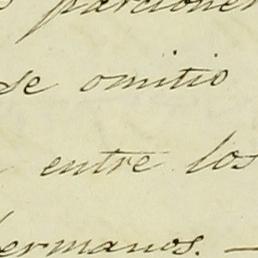 parcioner
se omitio
entre los
hermanos. —